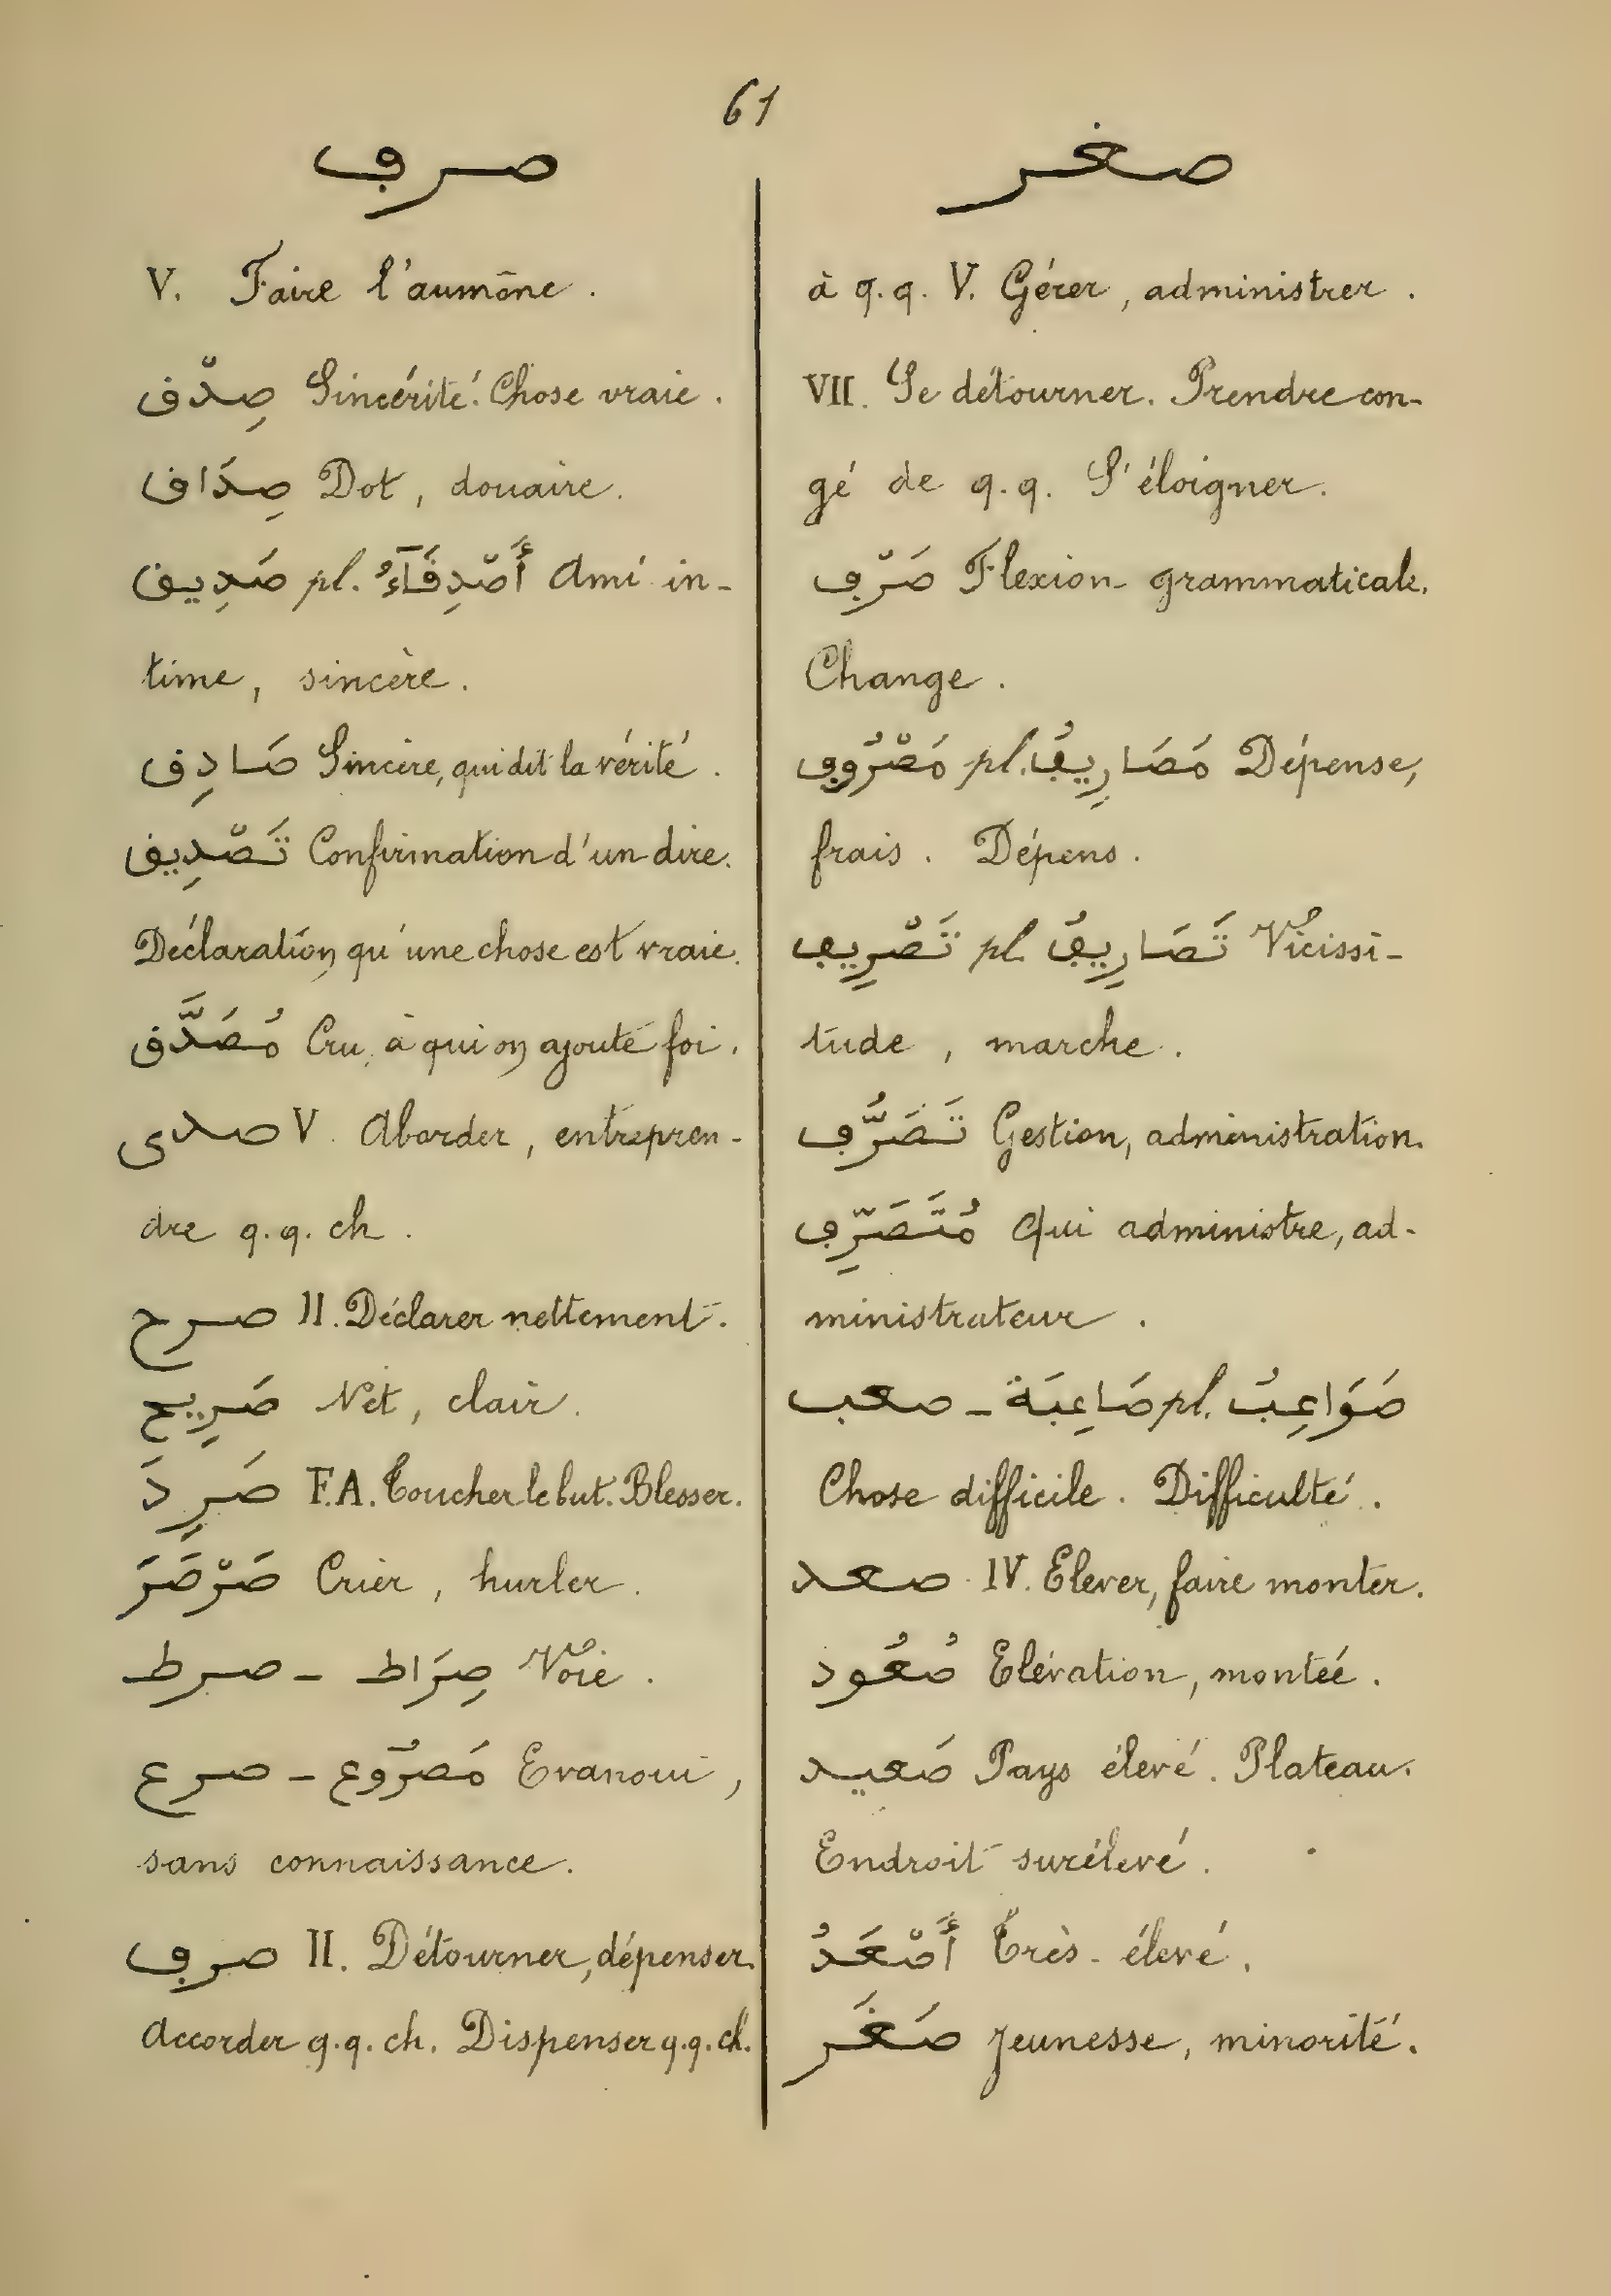 61
صرڢ
V. Faire l'aumône.
صِدْڧ Sincérité. Chose vraie.
صِدَاڧ Dot, douaire.
صَدِيڧ pl. أَصْدِڧَآءُ Ami in-
time, sincère.
صَادِڧ Sincère, qui dit la vérité.
تَصْدِيڧ Confirmation d'un dire.
Déclaration qu'une chose est vraie.
مُصَدَّڧ Cru, à qui on ajoute foi.
صدى V. Aborder, entrepren-
dre q.q. ch.
صرح II. Déclarer nettement.
صَرِيح Net, clair.
صَرِدَ F.A. Toucher le but. Blesser.
صَرْصَرَ Crier, hurler.
صرط - صِرَاط Voie.
صرع - مَصْرُوع Evanoui,
sans connaissance.
صرڢ II. Détourner, dépenser.
Accorder q.q. ch. Dispenser q.q. ch.
صغر
à q.q. V. Gérer, administrer.
VII. Se détourner. Prendre con-
gé de q.q. S'éloigner.
صَرْڢ Flexion grammaticale.
Change.
مَصْرُوڢ pl. مَصَارِيڢُ Dépense,
frais. Dépens.
تَصْرِيڢ pl. تَصَارِيڢُ Vicissi-
tude, marche.
تَصَرُّڢ Gestion, administration.
مُتَصَرِّڢ Qui administre, ad-
ministrateur.
صعب - صَاعِبَة pl. صَوَاعِبُ
Chose difficile. Difficulté.
صعد IV. Elever, faire monter.
صُعُود Elévation, montée.
صَعِيد Pays élevé. Plateau.
Endroit surélevé.
أَصْعَدُ Très-élevé.
صَغَر Jeunesse, minorité.